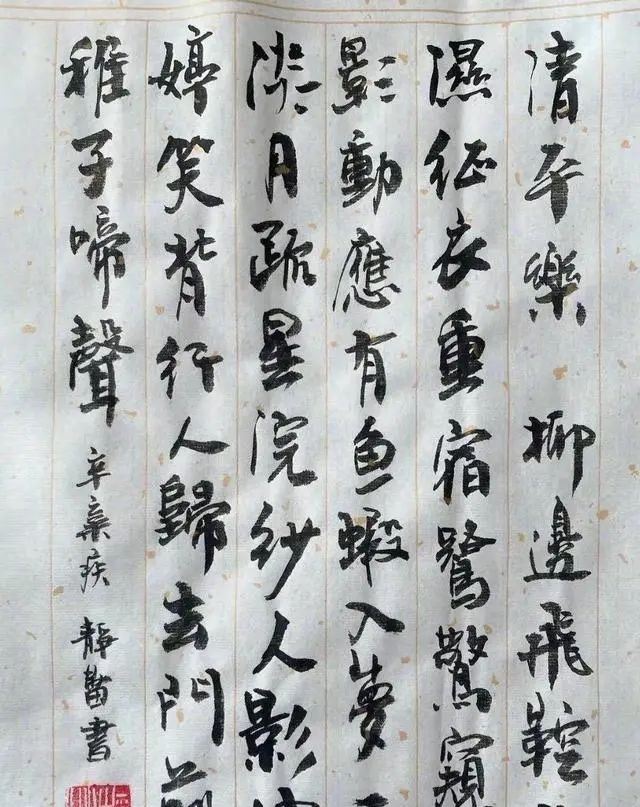 清平樂　柳邊飛鞚
濕征衣重宿鷺驚窺
影動應有魚蝦入夢
淡月疏星浣紗人影
婷笑背行人歸去門前
稚子啼聲
辛棄疾　靜
書